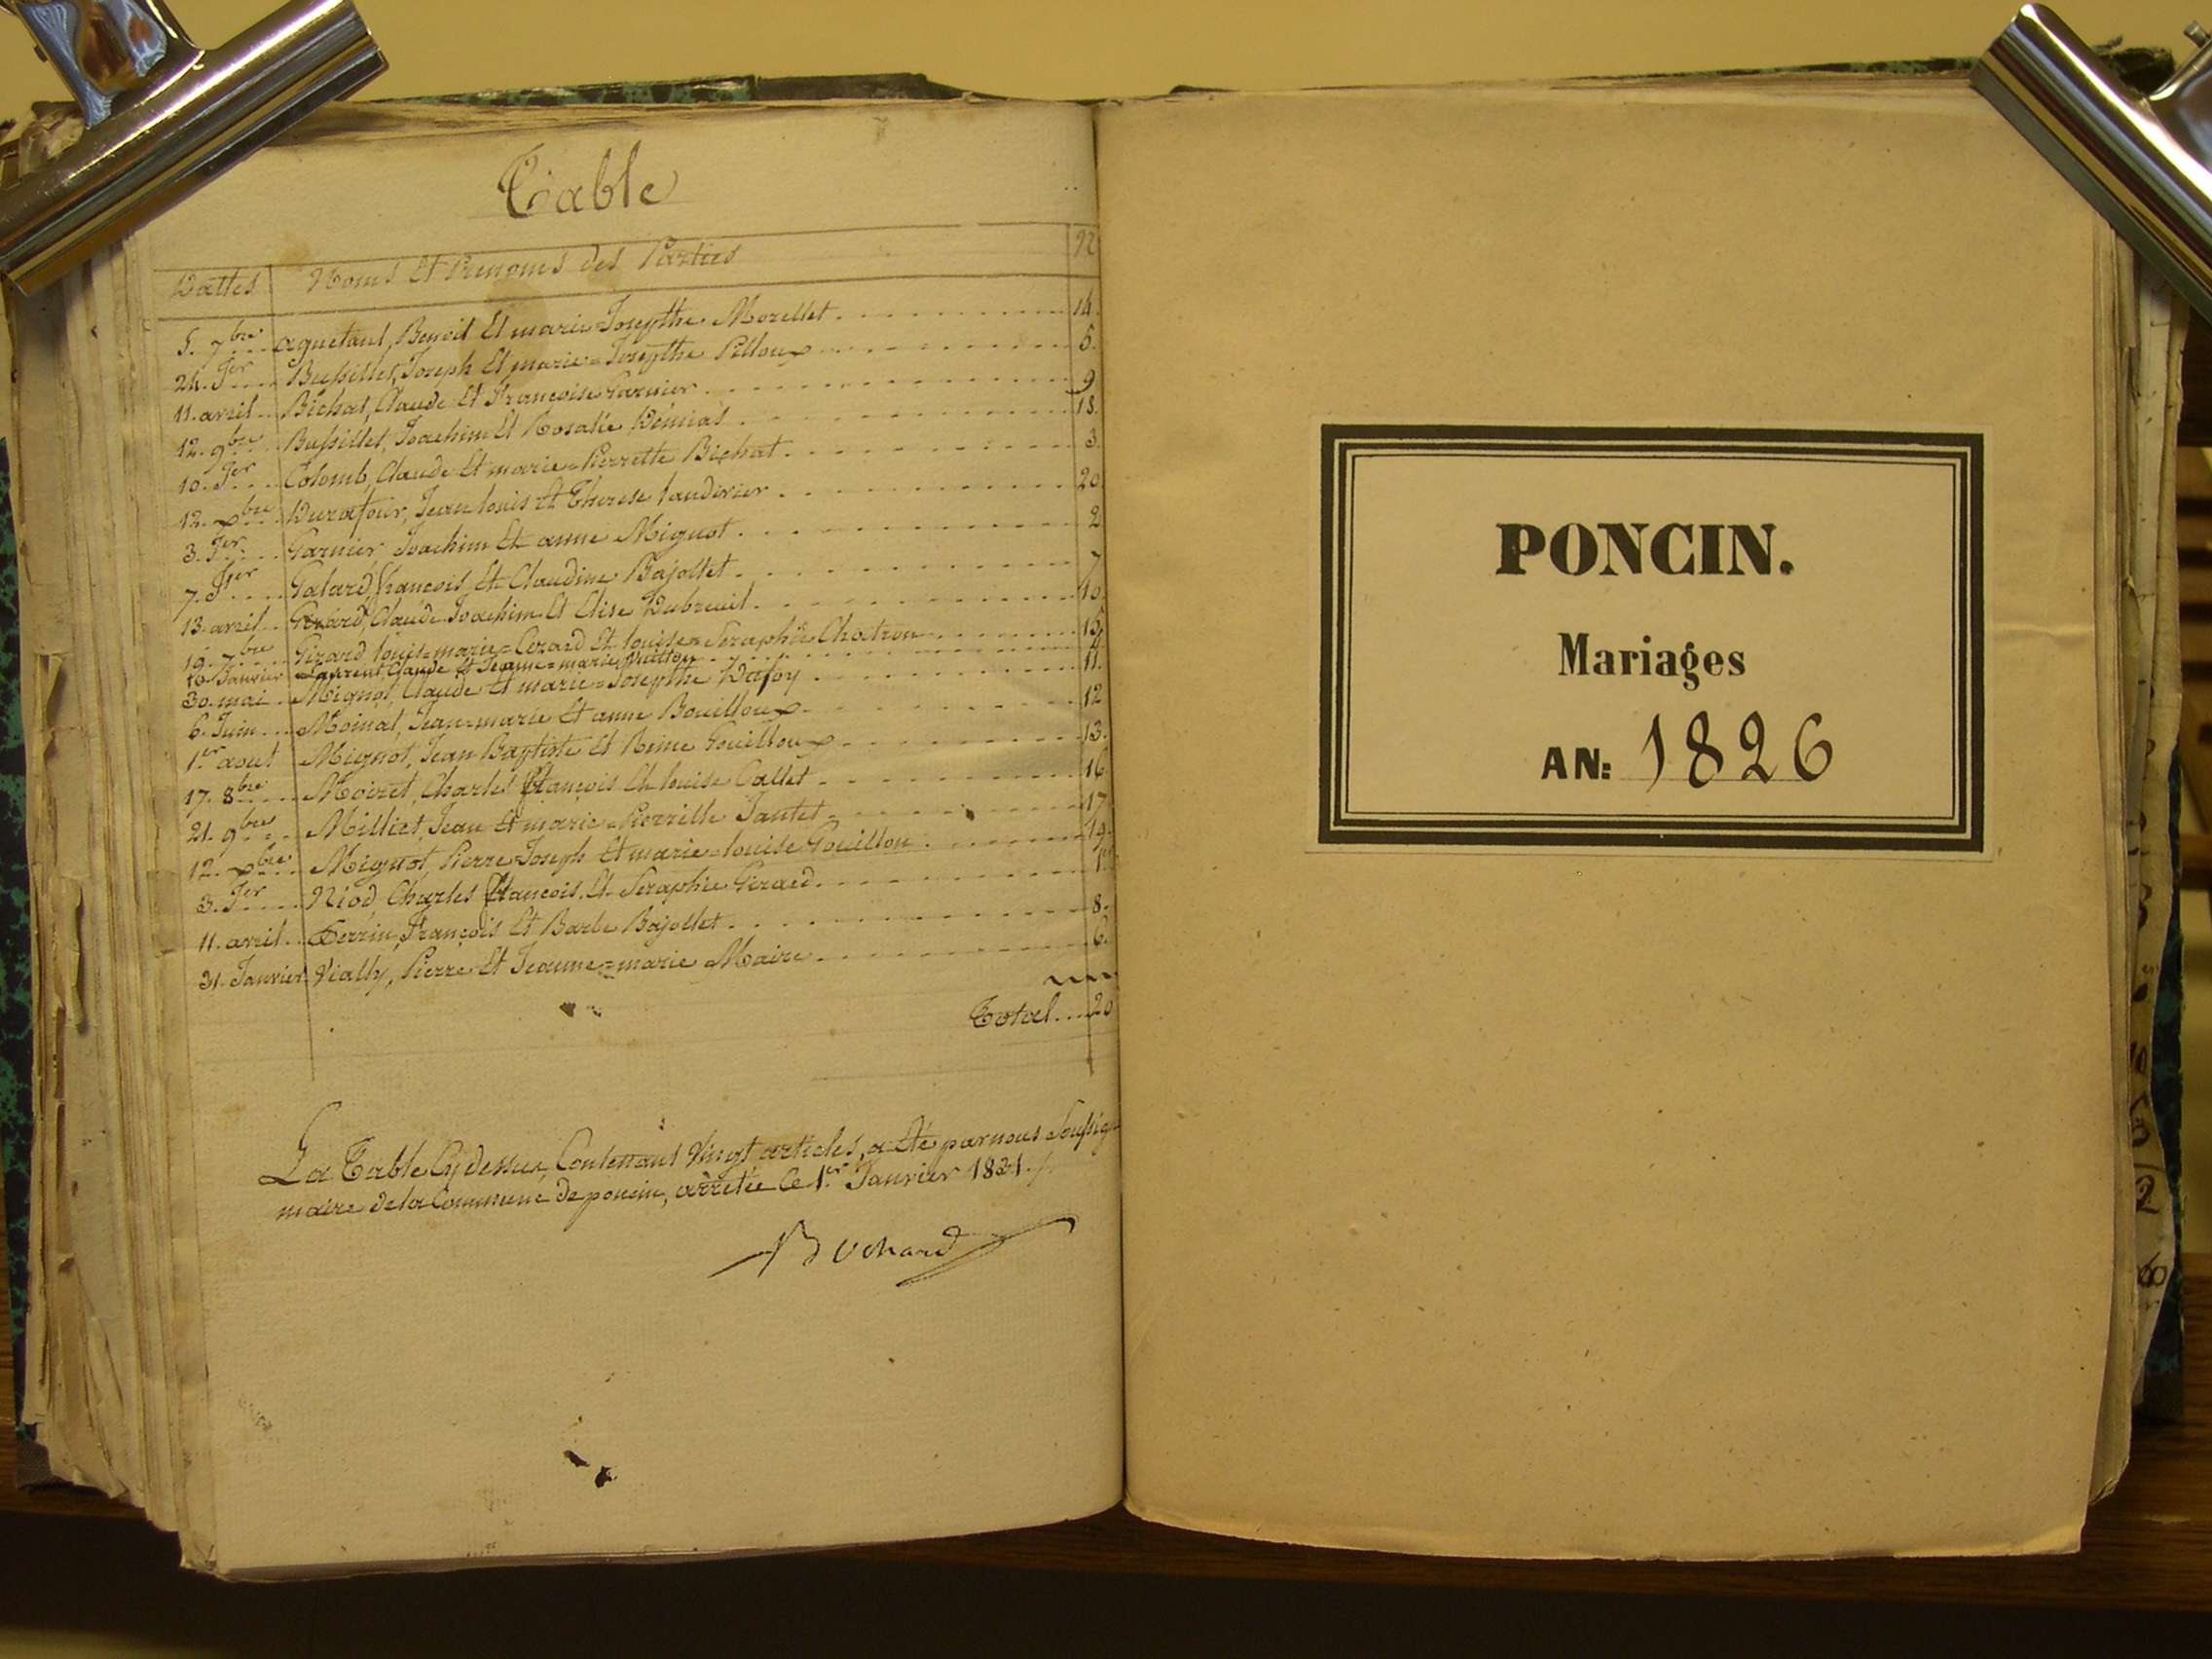 Table
Dattes Noms Et Prenoms des Parties N
5. 7bre aguetant, Benoit Et marie=Josepthe Morellet 14.
24. Jer Bussillet, Joseph Et marie=Josepthe Pilloux 5.
11. avril Bichat, Claude Et Françoise Garnier 9
12. 9bre Bussillet, Joachim Et Rosalie Démias 18.
10. Jer Colomb, Claude Et marie=Pierrette Bichat 3.
12. xbre Durafour, Jean louis Et Therese 20
3. Jer Garnier Joachim Et anne Mignot 2
7. Galard, françois Et Claudine Bajollet 7
13. avril Claude Joachim Et Elise Dubreuil 10.
19. 7bre Girard, louis=marie=Cerard Et louise=Seraphie Chatron 15.
Janvier Laurent, Claude Et Jeanne=marie 4.
30. mai Mignot, Claude Et marie=Josepthe Dafoy 11.
6. Juin Moinat, Jean=marie Et anne Bouilloux 12
1er aout Mignot, Jean Baptiste Et Reine Gouilloux 13.
17. 8bre Moiret, Charles François Et louise Callet 16
21. 9bre Milliet, Jean Et marie=Pierrette Tantet 17
12. xbre Mignot, Pierre=Joseph Et marie=louise Gouillou 19.
3. Jer Niod Charles françois Et Seraphie Girard 1er
11. avril Perrin, François Et Barbe Bajollet 8.
31. Janvier Vially, Pierre Et Jeanne=marie Maire 6.
Total 20
La Table Cydessus, Contenant Vingt articles, a Eté par nous Soussig
maire de la Commune de poncin, arrêtée le 1er Janvier 1821.
Bochard
PONCIN.
Mariages
AN: 1826